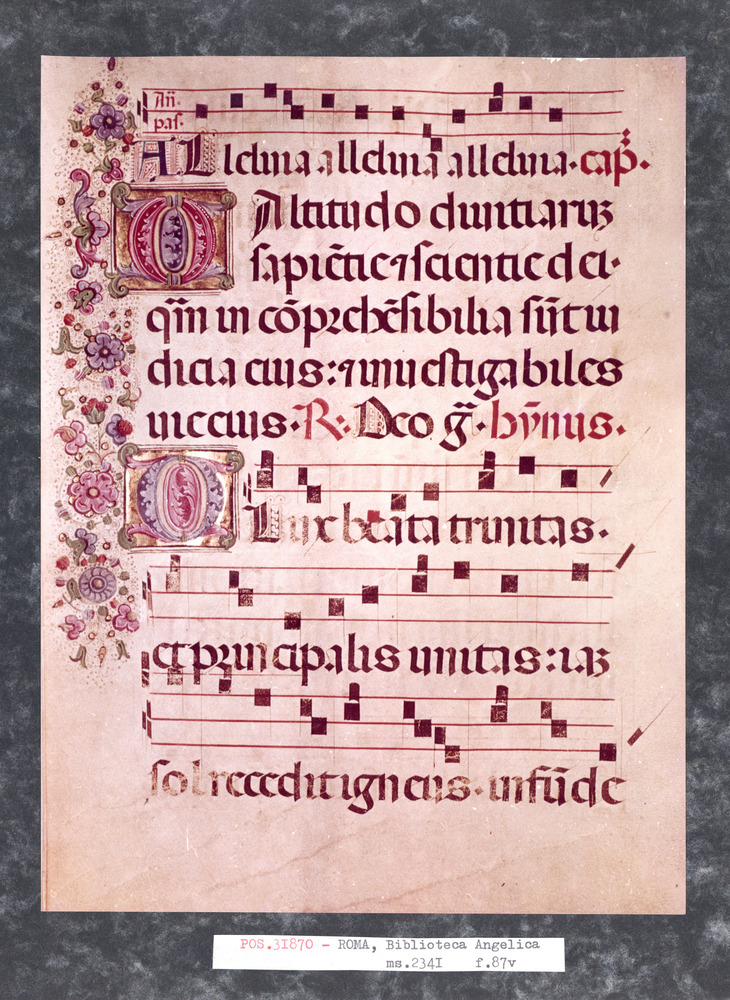 Añ.
pas.
ALleluia alleluia alleluia. cap̃.
O Altitudo diuitiaruꝫ
sapiẽtie ⁊ scientie dei.
q̃m incõprehẽsibilia sũt iu
dicia eius: ⁊ inuestigabiles
uie eius. R: Deo g̃. hỹnus.
O Lux beata trinitas.
et principalis unitas: iaꝫ
sol recedit igneus. infũde
POS.31870 - ROMA, Biblioteca Angelica
ms.2341 f.87v